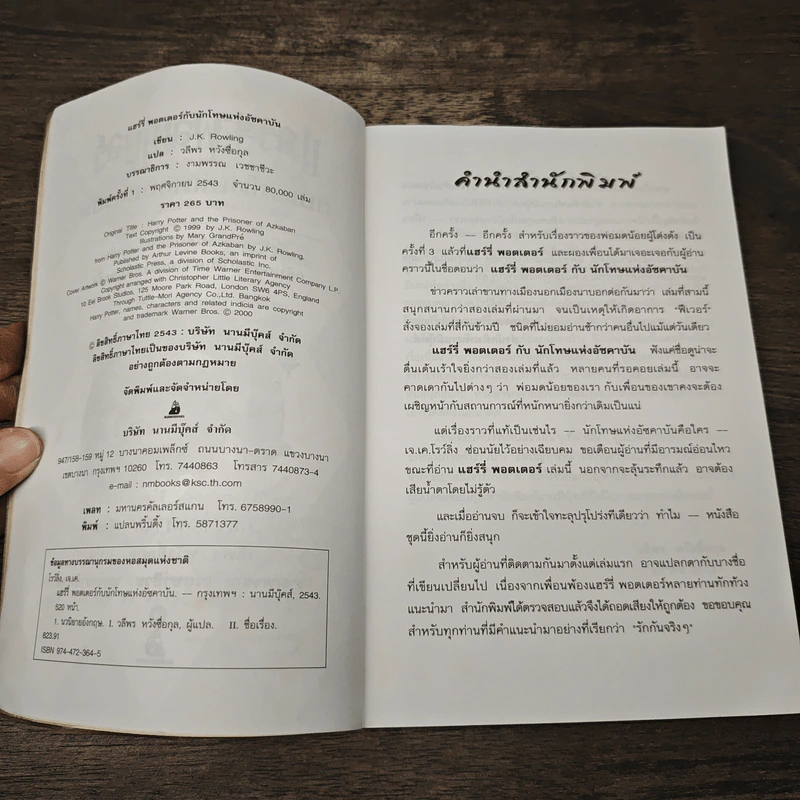 แฮร์รี่ พอตเตอร์กับนักโทษแห่งอัซคาบัน
เขียน : J.K. Rowling
แปล : วลีพร หวังซื่อกุล
บรรณาธิการ : งามพรรณ เวชชาชีวะ
พิมพ์ครั้งที่ 1 : พฤศจิกายน 2543 จำนวน 80,000 เล่ม
ราคา 265 บาท
Original Title : Harry Potter and the Prisoner of Azkaban
Text Copyright © 1999 by J.K. Rowling
Illustrations by Mary GrandPré
from Harry Potter and the Prisoner of Azkaban by J.K. Rowling.
Published by Arthur Levine Books, an imprint of
Scholastic Press, a division of Scholastic Inc.
Cover Artwork © Warner Bros. A division of Time Warner Entertainment Company LP.
Copyright arranged with Christopher Little Literary Agency
10 Eel Brook Studios, 125 Moore Park Road, London SW6 4PS, England
Through Tuttle-Mori Agency Co.,Ltd. Bangkok
Harry Potter, names, characters and related indicia are copyright
and trademark Warner Bros. © 2000
© ลิขสิทธิ์ภาษาไทย 2543 : บริษัท นานมีบุ๊คส์ จำกัด
ลิขสิทธิ์ภาษาไทยเป็นของบริษัท นานมีบุ๊คส์ จำกัด
อย่างถูกต้องตามกฎหมาย
จัดพิมพ์และจัดจำหน่ายโดย
บริษัท นานมีบุ๊คส์ จำกัด
947/158-159 หมู่ 12 บางนาคอมเพล็กซ์ ถนนบางนา-ตราด แขวงบางนา
เขตบางนา กรุงเทพฯ 10260 โทร. 7440863 โทรสาร 7440873-4
e-mail : nmbooks@ksc.th.com
เพลท : มหานครคัลเลอร์สแกน โทร. 6758990-1
พิมพ์ : แปลนพริ้นติ้ง โทร. 5871377
ข้อมูลทางบรรณานุกรมของหอสมุดแห่งชาติ
โรว์ลิ่ง, เจ.เค.
แฮร์รี่ พอตเตอร์กับนักโทษแห่งอัซคาบัน. -- กรุงเทพฯ : นานมีบุ๊คส์, 2543.
520 หน้า.
1. นวนิยายอังกฤษ. I. วลีพร หวังซื่อกุล, ผู้แปล. II. ชื่อเรื่อง.
823.91
ISBN 974-472-364-5
คำนำสำนักพิมพ์
อีกครั้ง -- อีกครั้ง สำหรับเรื่องราวของพ่อมดน้อยผู้โด่งดัง เป็น
ครั้งที่ 3 แล้วที่แฮร์รี่ พอตเตอร์ และผองเพื่อนได้มาเจอะเจอกับผู้อ่าน
คราวนี้ในชื่อตอนว่า แฮร์รี่ พอตเตอร์ กับ นักโทษแห่งอัซคาบัน
ข่าวคราวเล่าขานทางเมืองนอกเมืองนาบอกต่อกันมาว่า เล่มที่สามนี้
สนุกสนานกว่าสองเล่มที่ผ่านมา จนเป็นเหตุให้เกิดอาการ "ฟีเวอร์"
สั่งจองเล่มที่สี่กันข้ามปี ชนิดที่ไม่ยอมอ่านช้ากว่าคนอื่นไปแม้แต่วันเดียว
แฮร์รี่ พอตเตอร์ กับ นักโทษแห่งอัซคาบัน ฟังแค่ชื่อดูน่าจะ
ตื่นเต้นเร้าใจยิ่งกว่าสองเล่มที่แล้ว หลายคนที่รอคอยเล่มนี้ อาจจะ
คาดเดากันไปต่างๆ ว่า พ่อมดน้อยของเรา กับเพื่อนของเขาคงจะต้อง
เผชิญหน้ากับสถานการณ์ที่หนักหนายิ่งกว่าเดิมเป็นแน่
แต่เรื่องราวที่แท้เป็นเช่นไร -- นักโทษแห่งอัซคาบันคือใคร --
เจ.เค.โรว์ลิ่ง ซ่อนนัยไว้อย่างเฉียบคม ขอเตือนผู้อ่านที่มีอารมณ์อ่อนไหว
ขณะที่อ่าน แฮร์รี่ พอตเตอร์ เล่มนี้ นอกจากจะลุ้นระทึกแล้ว อาจต้อง
เสียน้ำตาโดยไม่รู้ตัว
และเมื่ออ่านจบ ก็จะเข้าใจทะลุปรุโปร่งทีเดียวว่า ทำไม -- หนังสือ
ชุดนี้ยิ่งอ่านก็ยิ่งสนุก
สำหรับผู้อ่านที่ติดตามกันมาตั้งแต่เล่มแรก อาจแปลกตากับบางชื่อ
ที่เขียนเปลี่ยนไป เนื่องจากเพื่อนพ้องแฮร์รี่ พอตเตอร์หลายท่านทักท้วง
แนะนำมา สำนักพิมพ์ได้ตรวจสอบแล้วจึงได้ถอดเสียงให้ถูกต้อง ขอขอบคุณ
สำหรับทุกท่านที่มีคำแนะนำมาอย่างที่เรียกว่า "รักกันจริงๆ"